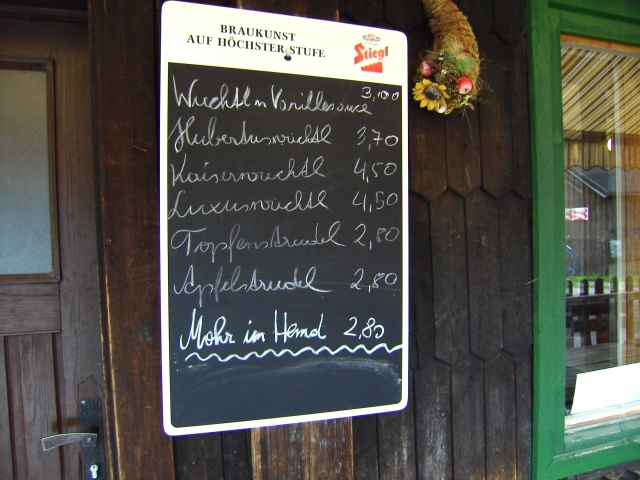 BRAUKUNST
AUF HÖCHSTER STUFE
Stiegl
Wuchtl m Vanillesauce 3,00
Hubertuswuchtl 3,70
Kaiserwuchtl 4,50
Luxuswuchtl 4,50
Topfenstrudel 2,80
Apfelstrudel 2,80
Mohr im Hemd 2,80